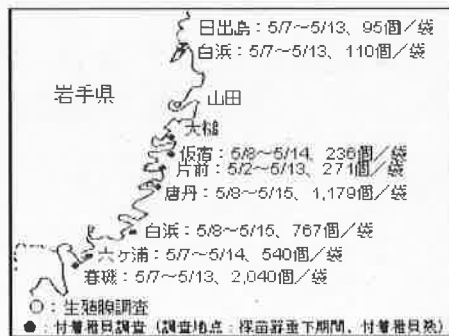 日出島：5/7～5/13、95個／袋
白浜：5/7～5/13、110個／袋
岩手県
山田
大槌
仮宿：5/8～5/14、236個／袋
片前：5/2～5/13、271個／袋
唐丹：5/8～5/15、1,179個／袋
白浜：5/8～5/15、767個／袋
六ヶ浦：5/7～5/14、540個／袋
春磯：5/7～5/13、2,040個／袋
○：生殖腺調査
●：付着稚貝調査（調査地点：採苗器垂下期間、付着稚貝数）